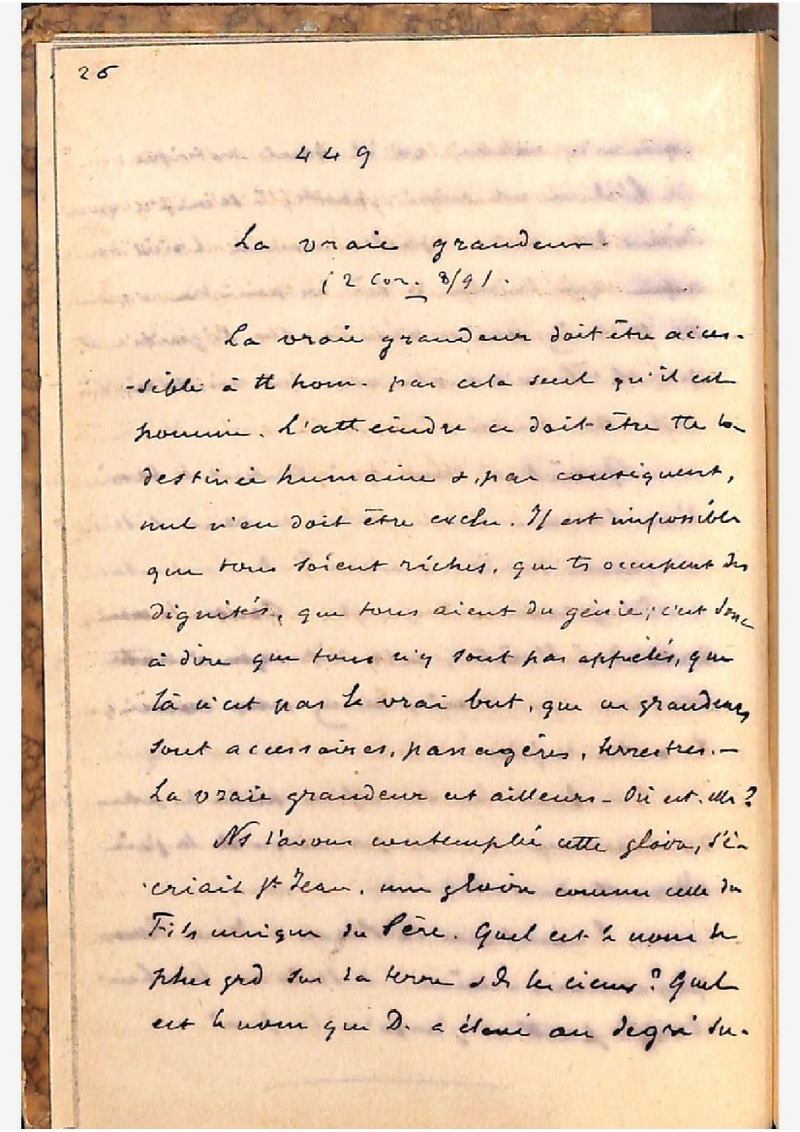 26
449
La vraie grandeur.
(2 Cor. 8/9).
La vraie grandeur doit être acces-
-sible à tt hom. par cela seul qu'il est
homme. L'atteindre ce doit être tte la
destinée humaine &, par conséquent,
nul n'en doit être exclu. Il est impossible
que tous soient riches, que ts occupent des
dignités, que tous aient du génie; c'est donc
à dire que tous n'y sont pas appelés, que
là n'est pas le vrai but, que ces grandeurs
sont accessoires, passagères, terrestres. —
La vraie grandeur est ailleurs - Où est-elle?
Ns l'avons contemplée cette gloire, s'é-
criait St Jean, une gloire comme celle du
Fils unique du Père. Quel est le nom le
plus grd sur la terre & ds les cieux? Quel
est le nom que D. a élevé au degré su-